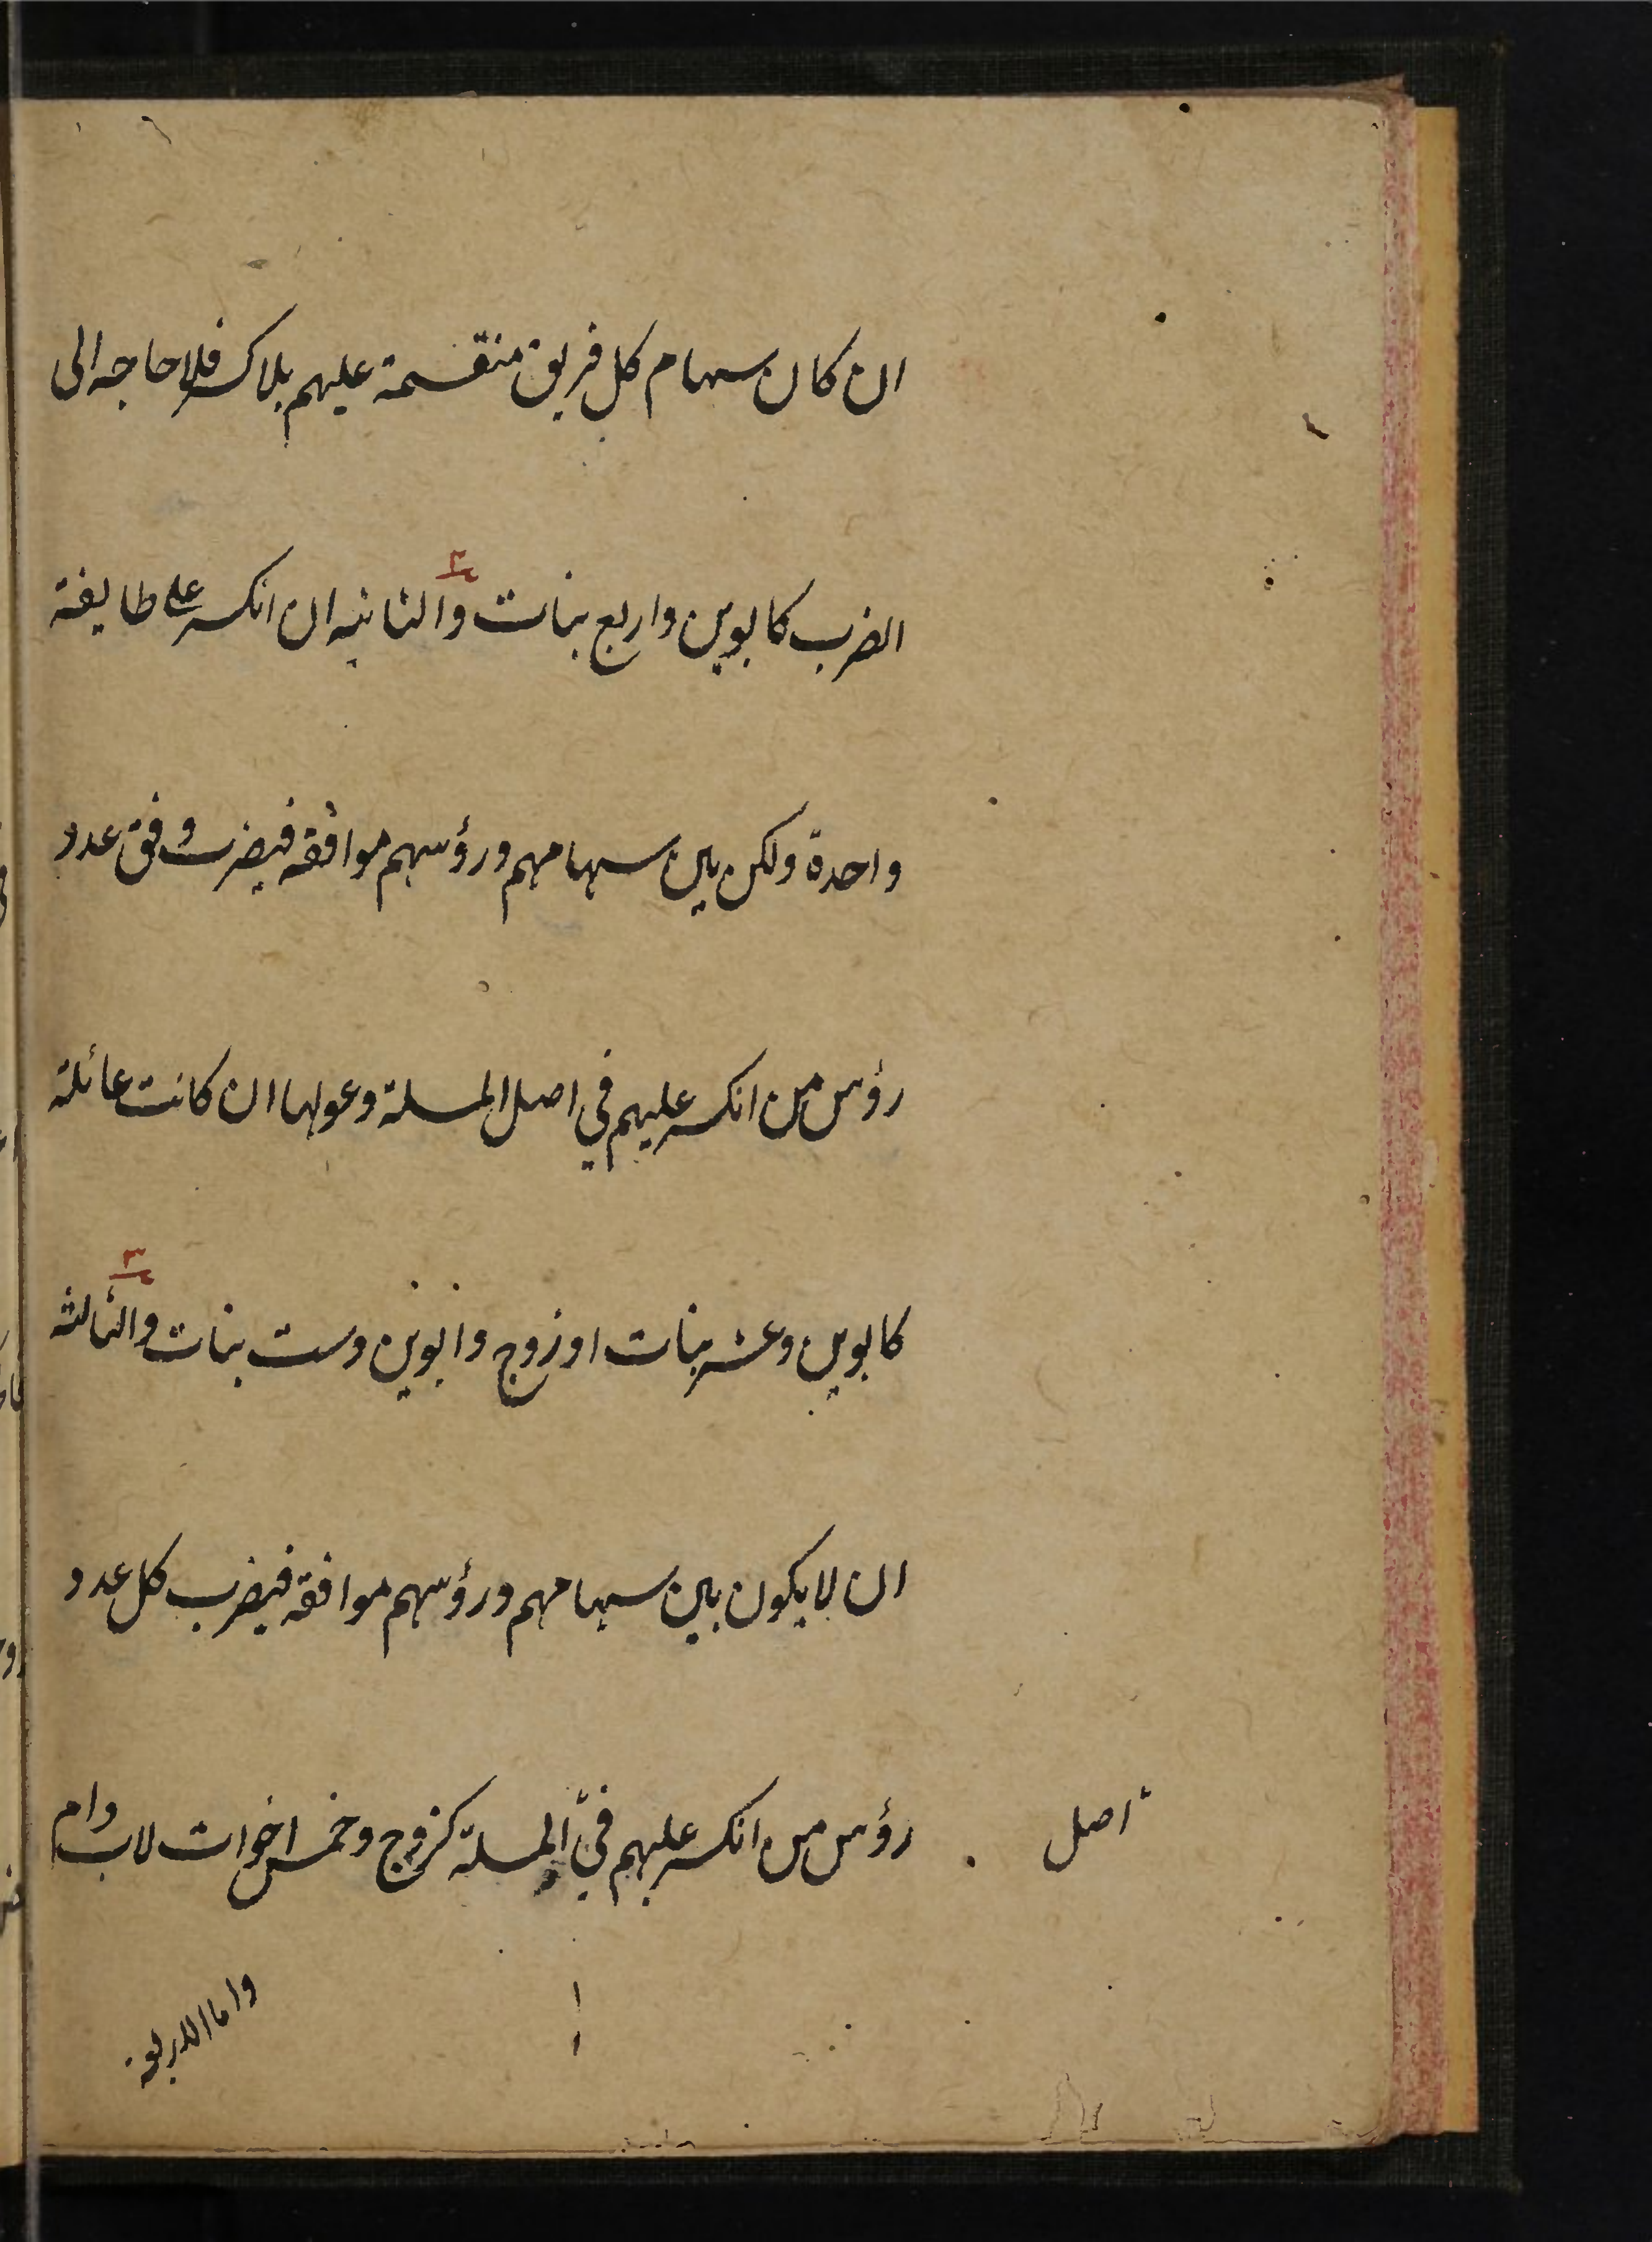 ان كان سهام كل فريق منقسمة عليهم بلا كسر فلا حاجه الى
٢
الضرب كابوين واربع بنات والثانيه ان انكسر على طايفة
واحدة ولكن بين سهامهم ورؤسهم موافقه فيضرب وفق عدد
رؤس من انكسر عليهم في اصل المسلة وعولها ان كانت عائلة
٣
كابوين وعشر بنات او زوج وابوين وست بنات والثالثه
ان لا يكون بين سهامهم ورؤسهم موافقه فيضرب كل عدد
رؤس من انكسر عليهم في المسلة كزوج وخمس اخوات لاب وام
اصل
واما الاربعة